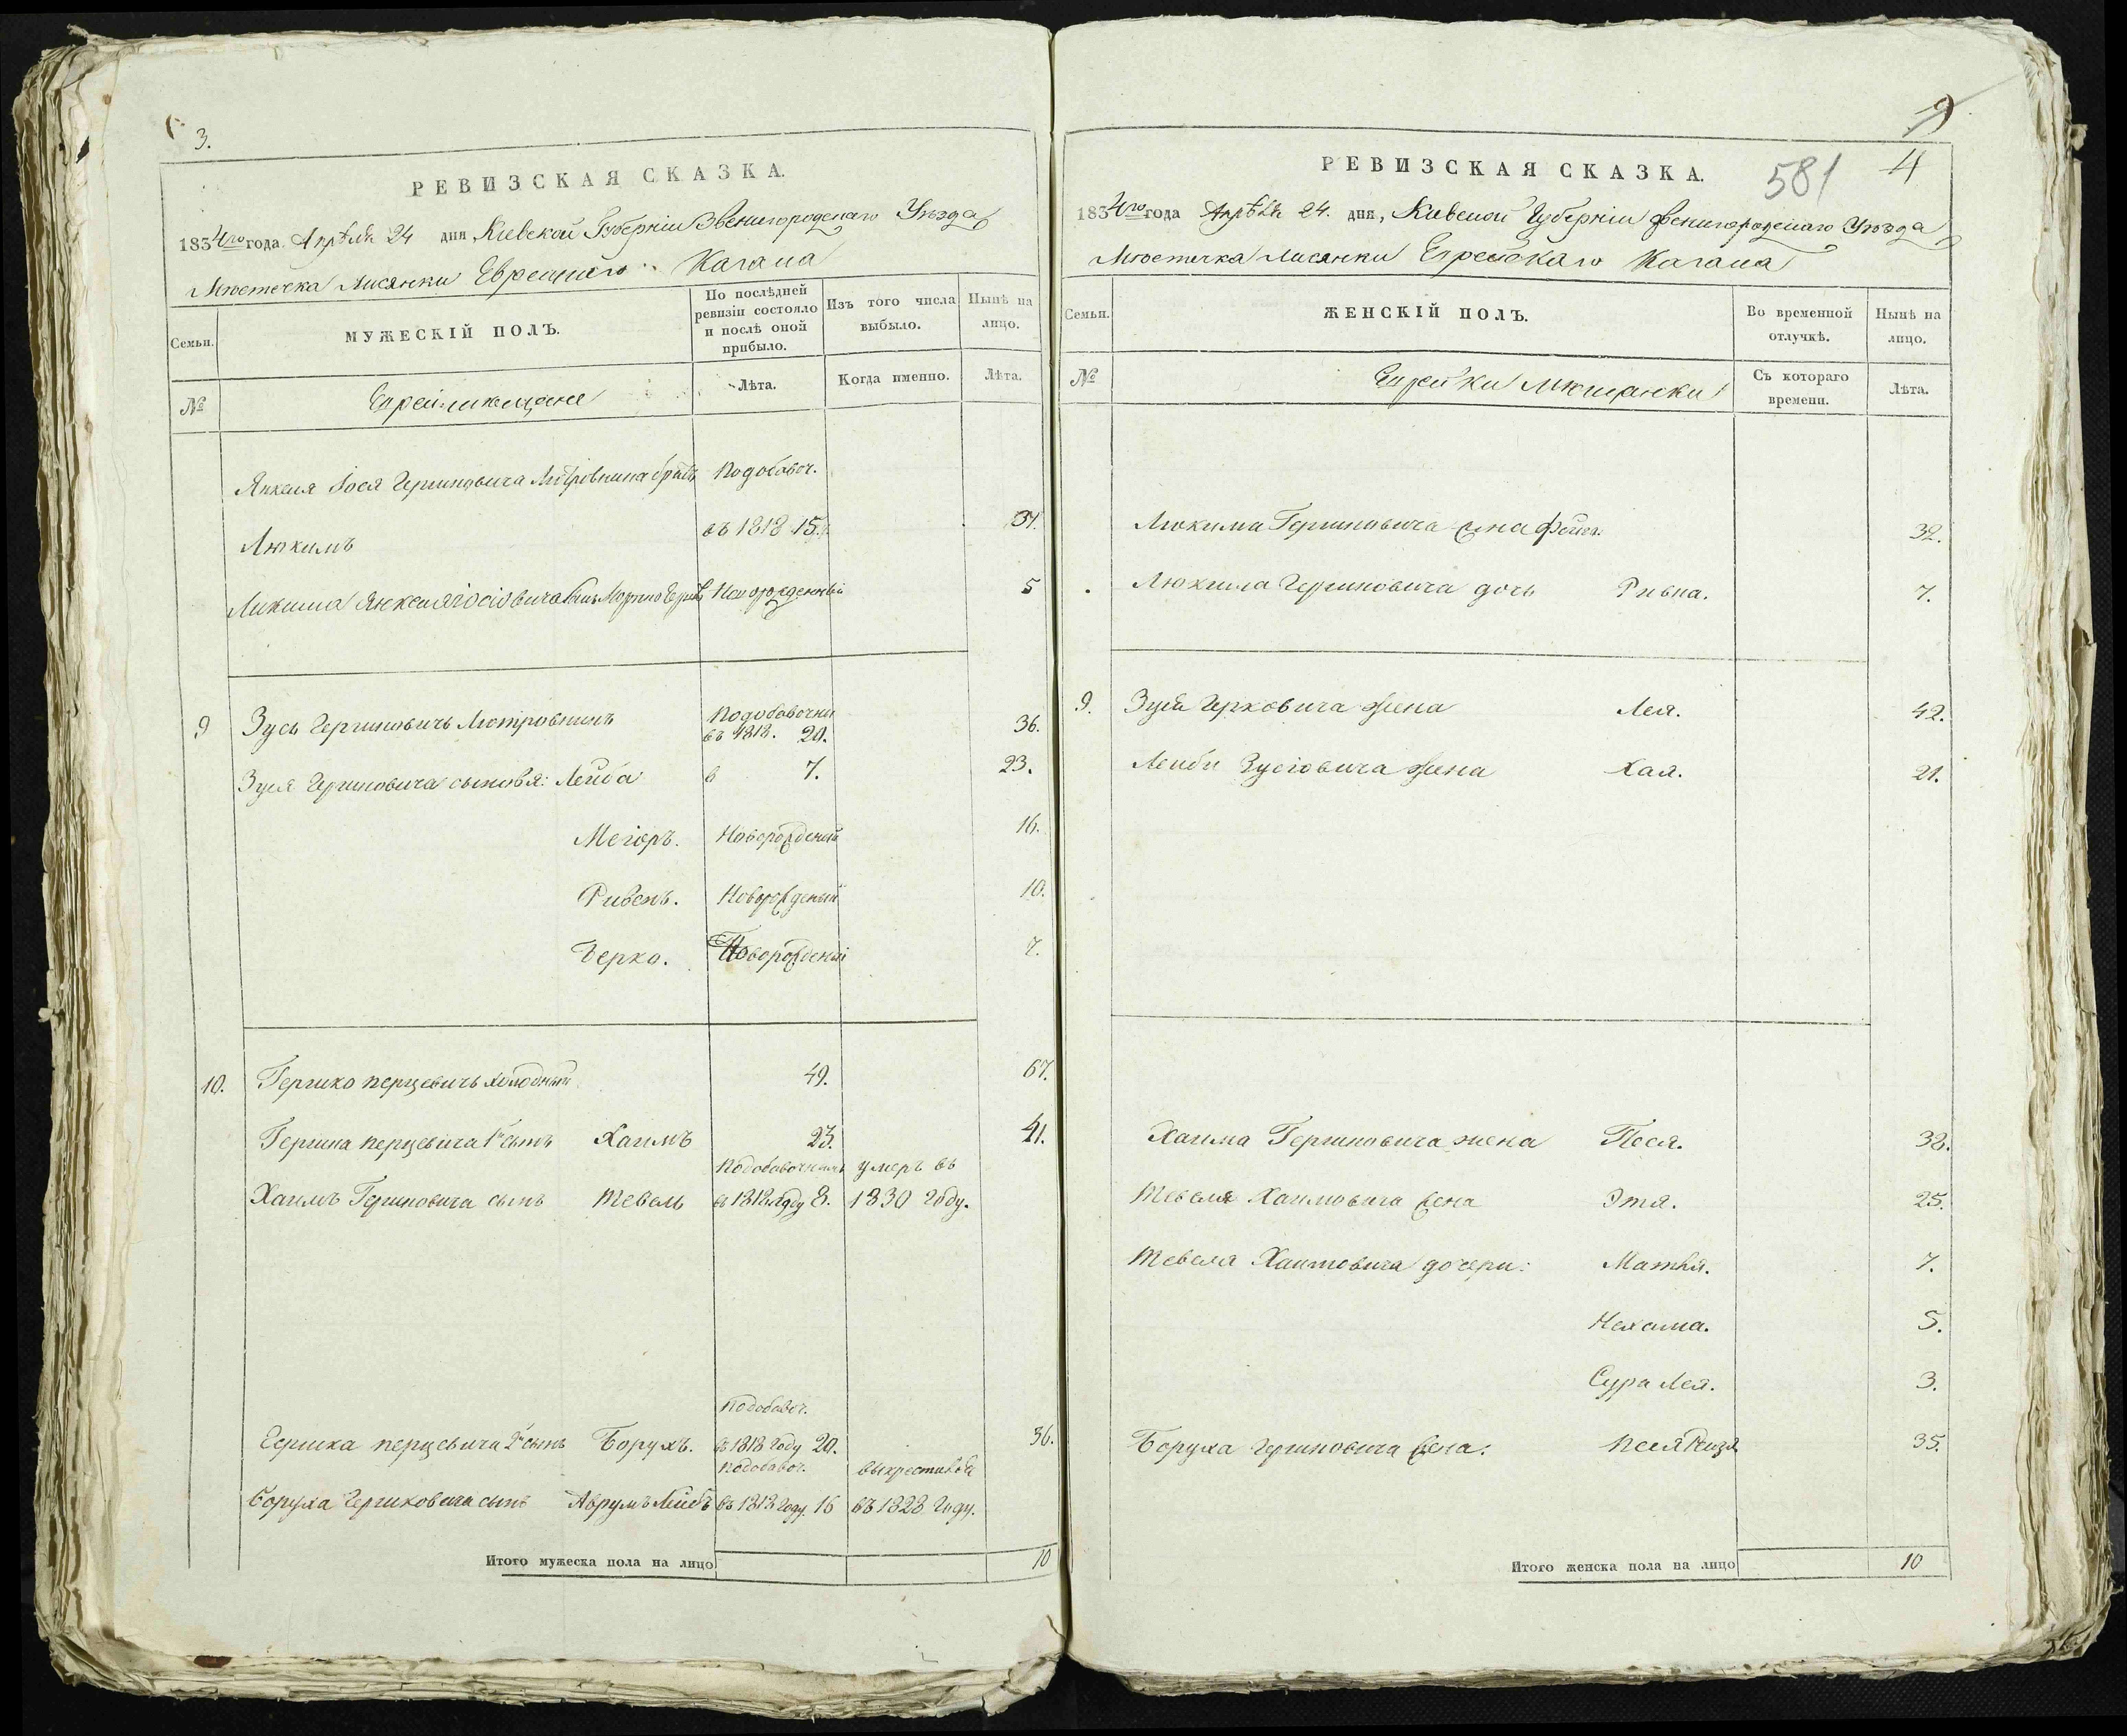 3.
РЕВИЗСКАЯ СКАЗКА.
1834го года Апрѣля 24 дня Киевской Губерніи Звенигородскаго Уѣзда
Мѣстечка Лисянки Еврейскаго Кагала
Семьи.
МУЖЕСКІЙ ПОЛЪ.
По послѣдней ревизіи состояло и послѣ оной прибыло.
Изъ того числа выбыло.
Нынѣ на лицо.
№
Евреи мещане
Лѣта.
Когда именно.
Лѣта.
Янкеля Іося Гершковича братъ Подобавоч.
Люкимъ въ 1818 15. 31.
Янкеля Новорожденный 5
9 Зусь Гершковичъ Подобавочны
въ 1818. 20. 36.
Зуся Гершковича сыновья: Лейба в 7. 23.
Меіоръ. Новорожденый 16.
Рувенъ. Новорожденый 10.
Берко. Новорожденый 7.
10. Гершко Перцевичъ Холодный 49. 67.
Гершка Перцевича 1й сынъ Хаимъ 23. 41.
Подобавочнымъ умеръ въ
Хаимъ Гершковича сынъ Тевель въ 1818 году 8. 1830 году.
Подобавоч.
Гершка Перцевича 2й сынъ Борухъ. въ 1818 году 20. 36.
Подобавоч. выкрестился
Боруха Гершковича сынъ Аврумъ Лейбъ въ 1818 году 16 въ 1828 году.
Итого мужеска пола на лицо 10
9
581
4
РЕВИЗСКАЯ СКАЗКА.
1834го года Апрѣля 24. дня, Киевской Губерніи Звенигородскаго Уѣзда
Мѣстечка Лисянки Еврейскаго Кагала
Семьи.
ЖЕНСКІЙ ПОЛЪ.
Во временной отлучкѣ.
Нынѣ на лицо.
№
Еврейки мещанки
Съ котораго времени.
Лѣта.
Люкима Гершковича жена Фейга. 32.
Люкима Гершковича дочь Ривка. 7.
9. Зуся Герковича жена Лея. 42.
Лейби Зусіовича жена Хая. 21.
Хаима Гершковича жена Песя. 38.
Тевеля Хаимовича жена Этя. 25.
Тевеля Хаимовича дочери: Матля. 7.
Нехама. 5.
Сура Лея. 3.
Боруха Гершковича жена: Песя Рейзя 35.
Итого женска пола на лицо 10